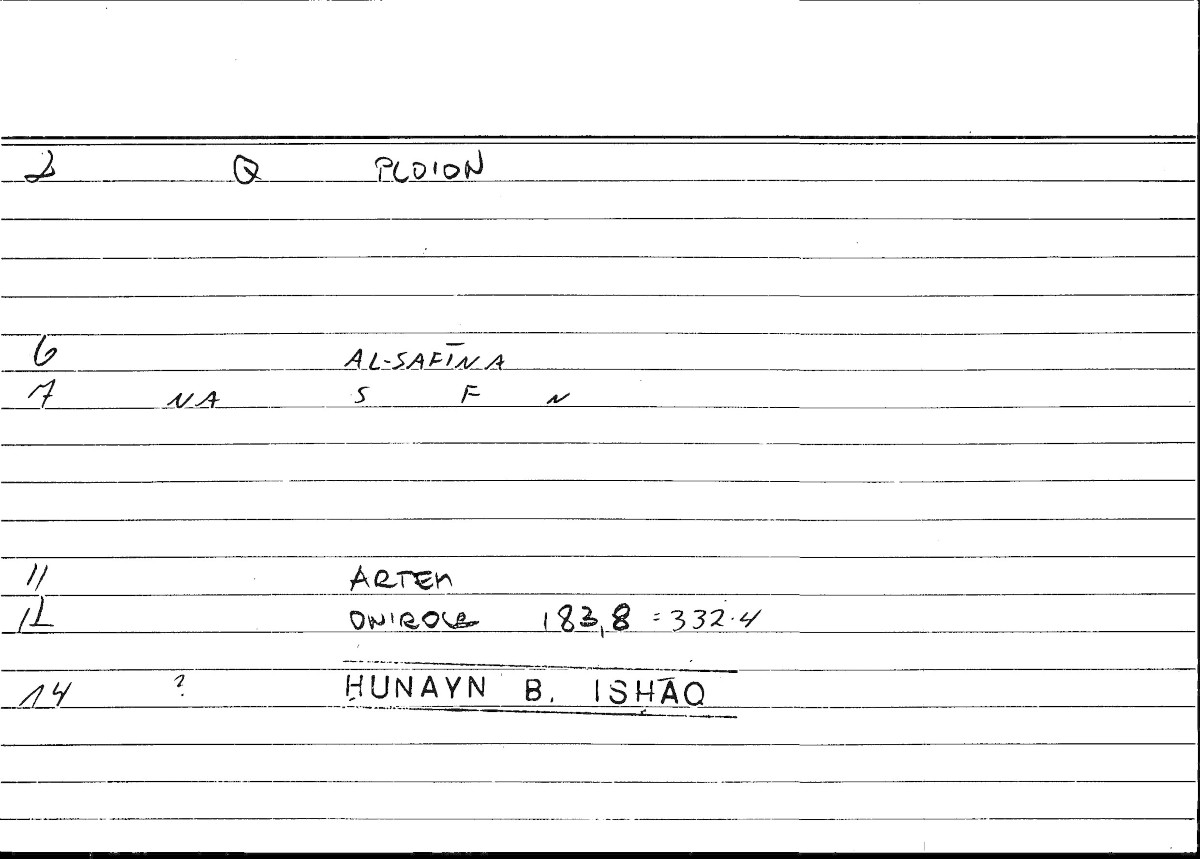 2 Q PLOION
6 AL-SAFĪNA
7 NA S F N
11 ARTEM
12 ONIROCR 183,8 = 332.4
14 ? ḤUNAYN B. ISḤĀQ